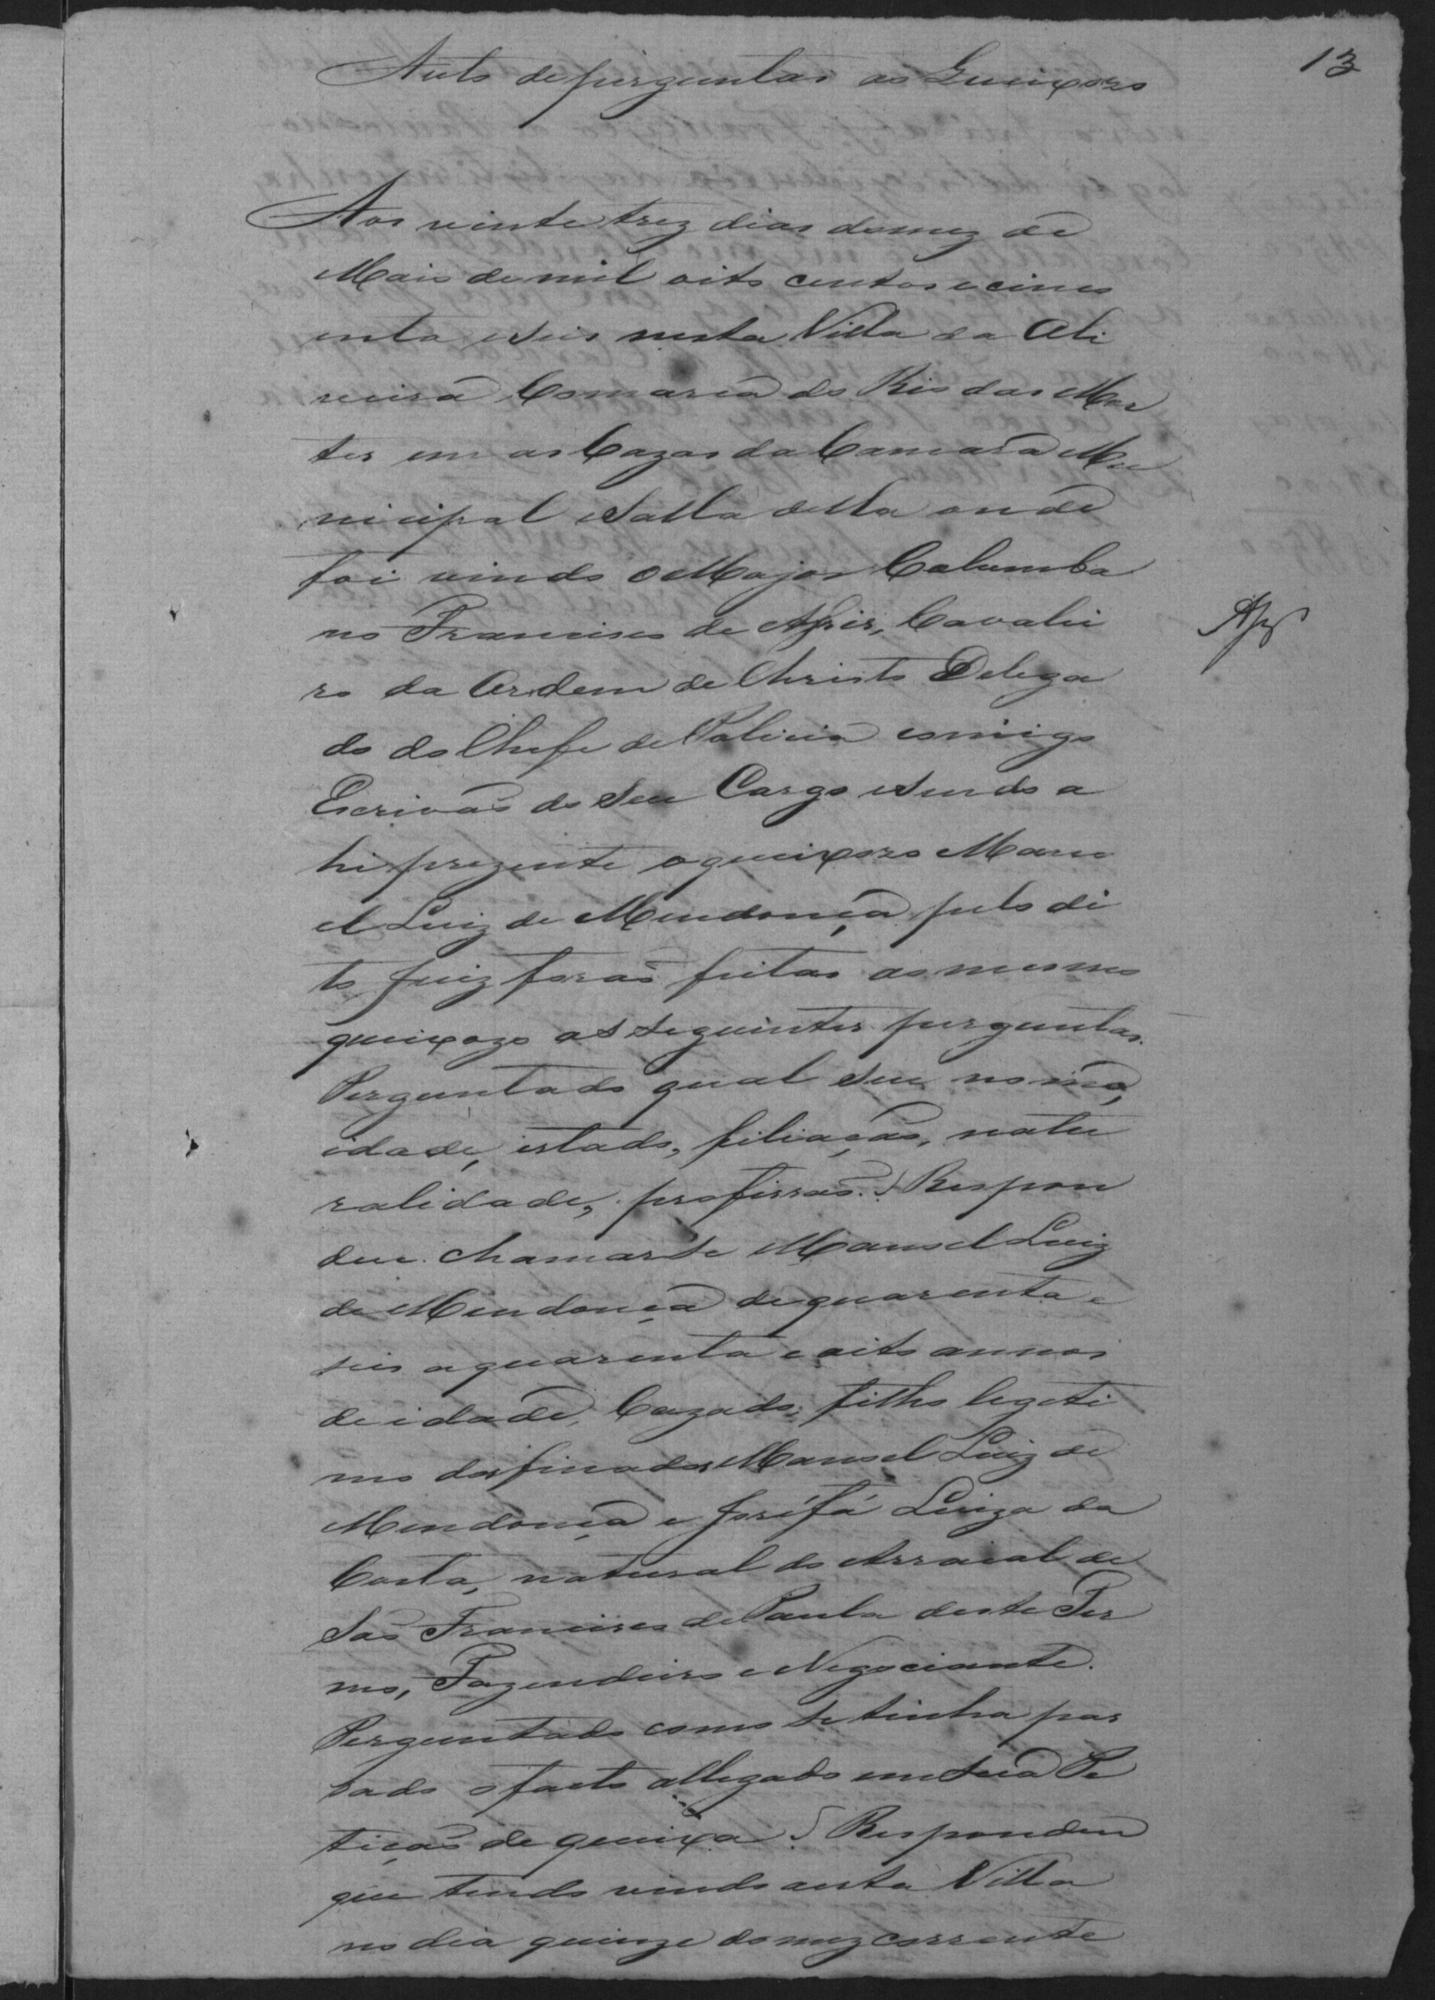 13
Auto de perguntas ao Queixozo
Aos vinte trez dias do mez de
Maio de mil oito centos e cinco
enta e seis nesta Villa da Oli
veira Comarca do Rio das Mor
tes em as Cazas da Camara Mu
nicipal e Salla della onde
foi vindo o Major Columba
no Francisco de Assis, Cavalei
ro da Ordem de Christo Delega
do do Chefe de Policia comigo
Escrivaõ do Seu Cargo e sendo a
hi prezente o queixozo Mano
el Luiz de Mendonça pelo di
to Juiz foraõ feitas ao mesmo
queixozo as seguintes perguntas.
Perguntado qual seu nome,
idade, estado, filiaçaõ, natu
ralidade, profissaõ? Respon
deu chamarse Manoel Luiz
de Mendonça de quarenta e
seis a quarenta e oito annos
de idade, Cazado, filho legeti
mo dos finados Manoel Luiz de
Mendonça e Joséfá Luiza da
Costa, natural do Arraial de
Saõ Francisco de Paula deste Ter
mo, Fazendeiro e Negociante.
Perguntado como se tinha pas
sado o facto allegado em sua Pe
tiçaõ de queixa? Respondeu
que tendo vindo a esta Villa
no dia quinze do mez corrente